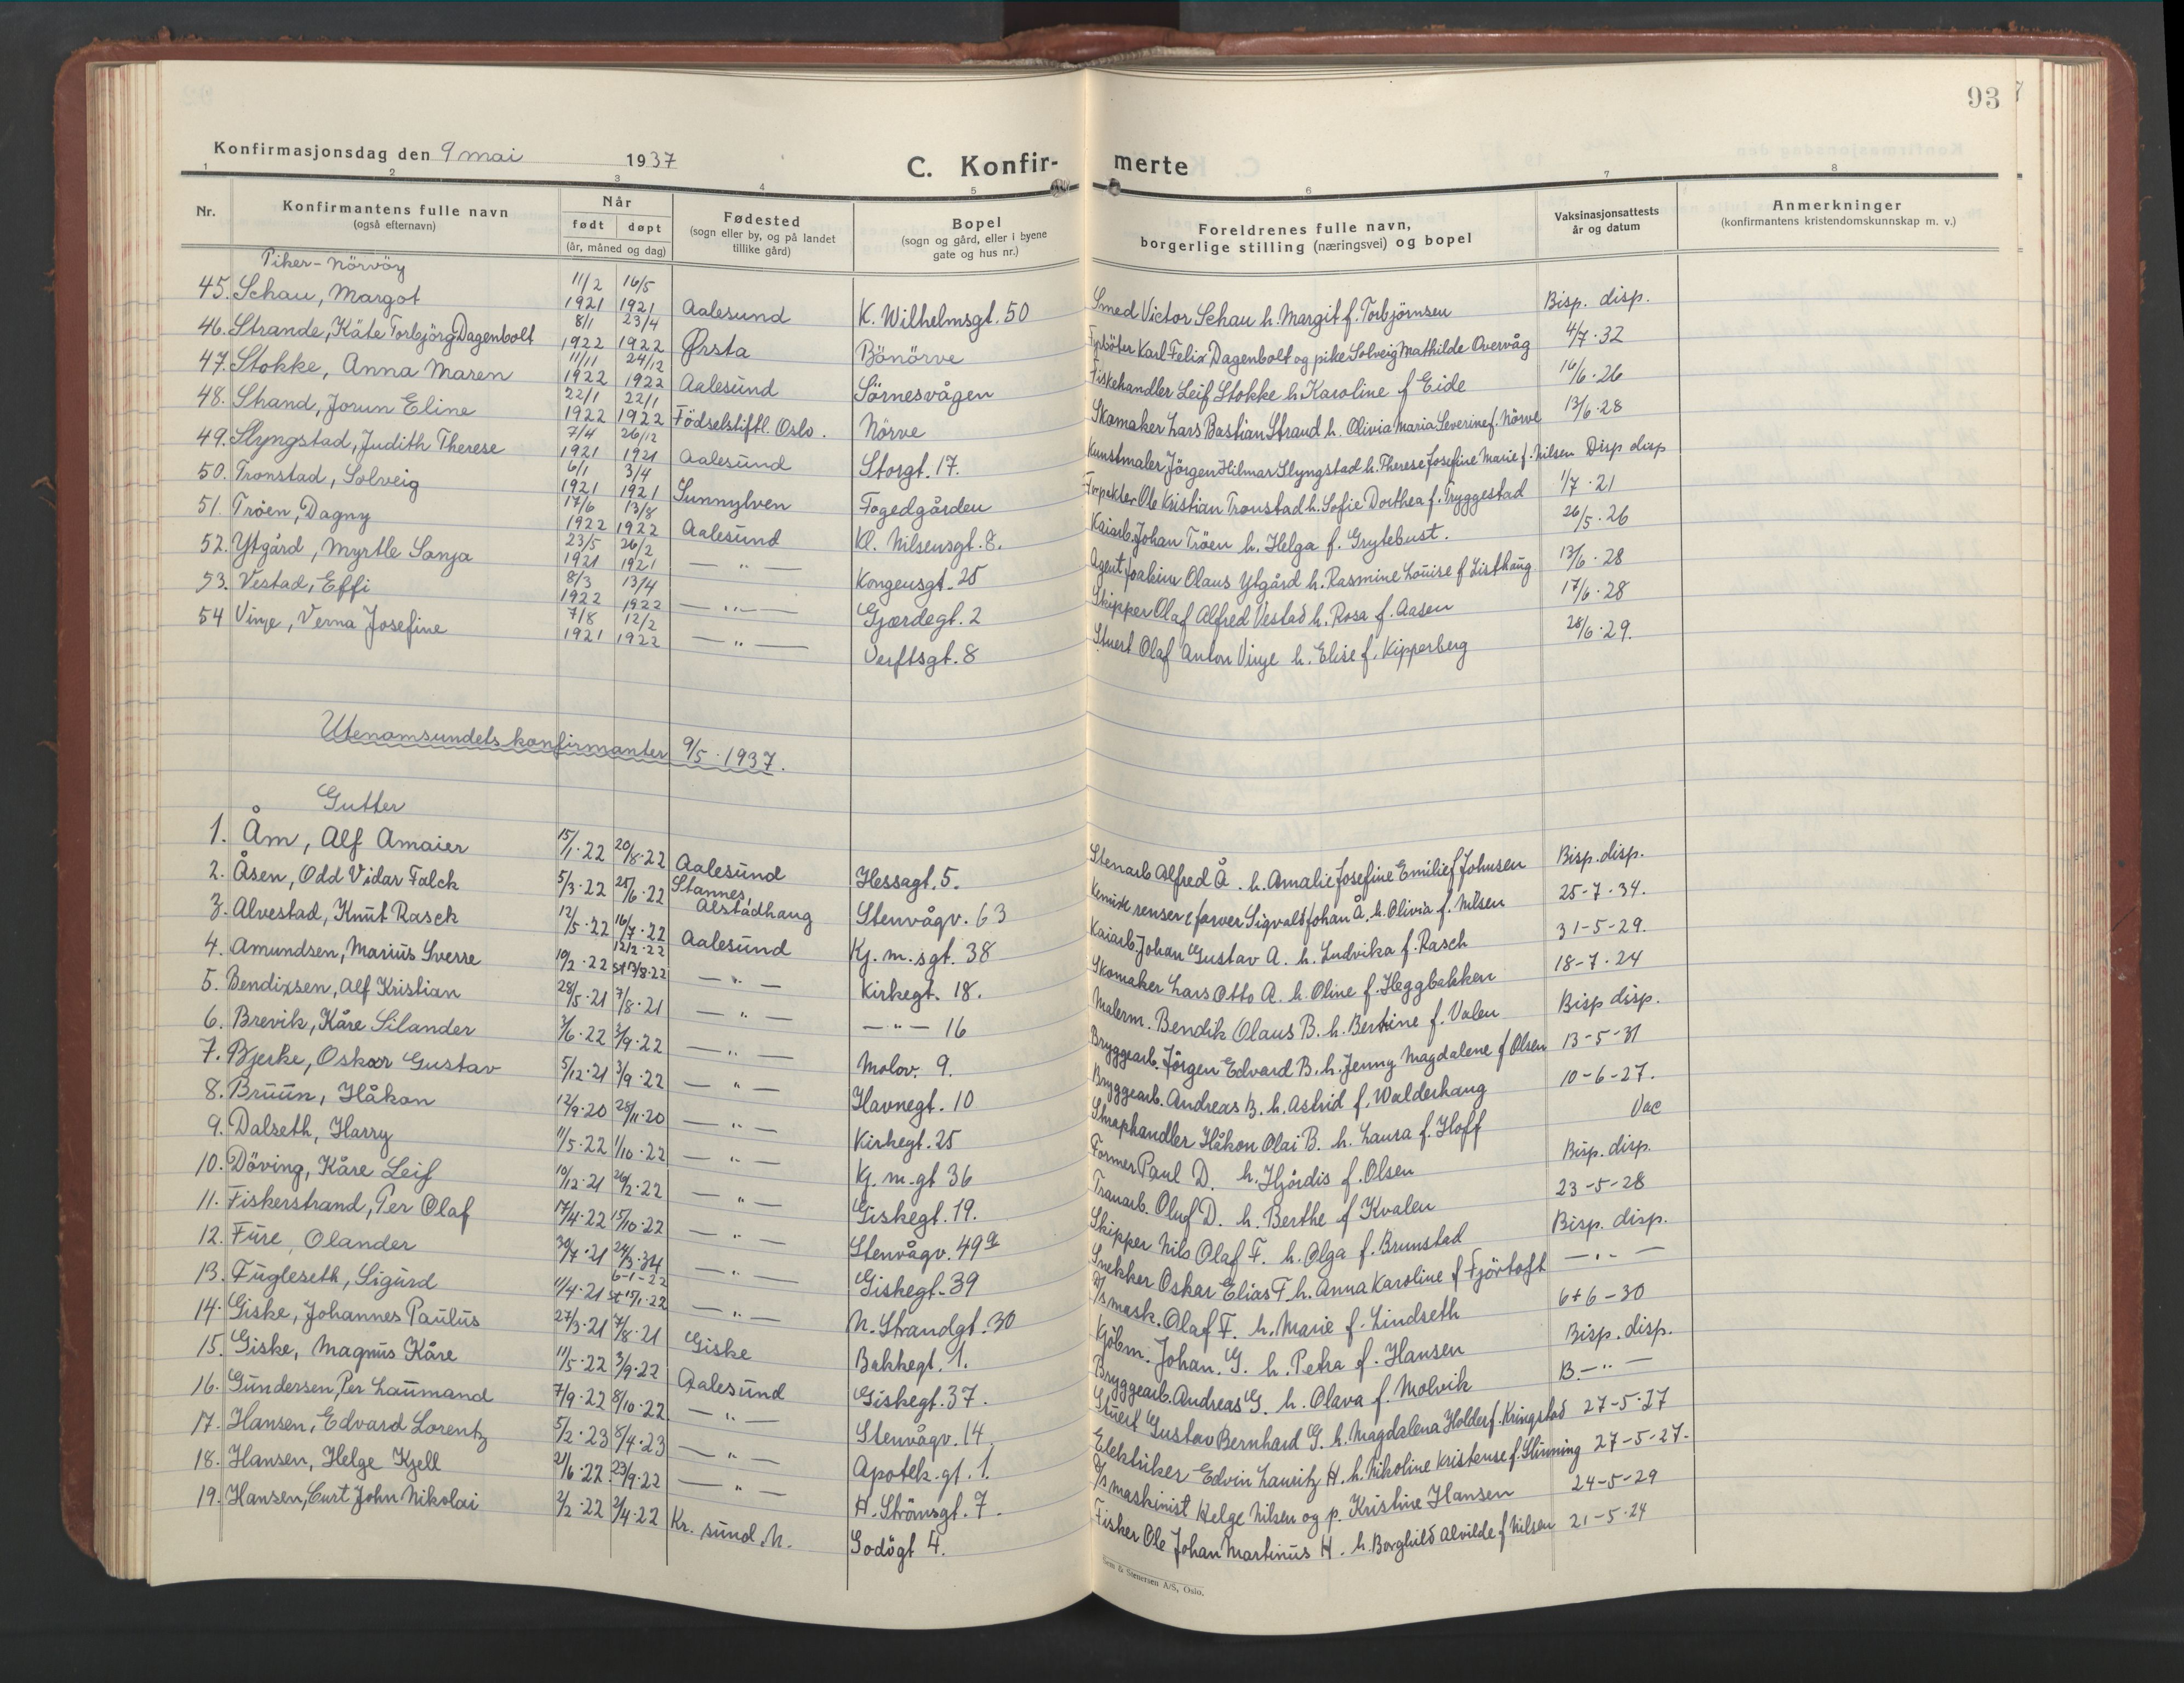 93
Konfirmasjonsdag den 9 mai 1937
C. Konfirmerte
1 2 3 4 5 6 7 8
Nr. Konfirmantens fulle navn (også efternavn) Når født døpt (år, måned og dag) Fødested (sogn eller by, og på landet tillike gård) Bopel (sogn og gård, eller i byene gate og hus nr.) Foreldrenes fulle navn, borgerlige stilling (næringsvei) og bopel Vaksinasjonsattests år og datum Anmerkninger (konfirmantens kristendomskunnskap m. v.)
Piker - Nörvöy
45. Schau, Margot 11/2 1921 16/5 1921 Aalesund K. Wilhelmsgt. 50 Smed Victor Schau h. Margit f. Torbjörnsen Bisp. disp.
46. Strande, Käte Torbjörg Dagenbolt 8/1 1922 23/4 1922 Ørsta Bönörve Fyrböter Karl Felix Dagenbolt og pike Solveig Mathilde Overvåg 4/7. 32
47. Stokke, Anna Maren 11/11 1922 24/12 1922 Aalesund Sörnesvågen Fiskehandler Leif Stokke h. Karoline f Eide 16/6. 26
48. Strand, Jorun Eline 22/1 1922 22/1 1922 Födselstiftl. Oslo. Nörve Skomaker Lars Bastian Strand h. Olivia Maria Severine f. Nörve 13/6. 28
49. Slyngstad, Judith Therese 7/4 1921 26/12 1921 Aalesund Storgt. 17. Kunstmaler Jörgen Hilmar Slyngstad h. Therese Josefine Marie f. Nilsen Disp disp
50. Tronstad, Solveig 6/1 1921 3/4 1921 Sunnylven Fogedgården Ole Kristian Tronstad h. Sofie Dorthea f. Tryggestad 1/7. 21
51. Tröen, Dagny 17/6 1922 13/8 1922 Aalesund Kl. Nilsensgt. 8. Kaiarb. Johan Tröen h. Helga f. Grytebust. 26/5. 26
52. Ytgård, Myrtle Sonja 23/5 1921 26/2 1921 — " — Kongensgt. 25 Agent Joakim Olaus Ytgård h. Rasmine Louise f Listhaug 13/6. 28
53. Vestad, Effi 8/3 1922 13/4 1922 — " — Gjærdegt. 2 Skipper Olaf Alfred Vestad h. Rosa f. Aasen 17/6. 28
54 Vinje, Verna Josefine 7/8 1921 12/2 1922 — " — Verftsgt. 8 Stuert Olaf Anton Vinje h. Elise f. Kipperberg 28/6. 29.
Utenomsundets konfirmanter 9/5. 1937.
Gutter
1. Åm, Alf Amaier 15/1. 22 20/8. 22 Aalesund Hessagt. 5. Stenarb Alfred Å. h. Amalie Josefine Emilie f Johnsen Bisp. disp.
2. Åsen, Odd Vidar Falck 5/3. 22 25/6. 22 Stannes, Alstadhaug Stenvågv. 63 Kemisk renser & farver Sigvald Johan Å. h. Olivia f. Nilsen 25-7-34.
3. Alvestad, Knut Rasch 12/5. 22 16/7. 22 Aalesund Kj. m. sgt. 38 Kaiarb. Johan Gustav A. h. Ludvika f. Rasch 31-5-29.
4. Amundsen, Marius Sverre 10/2. 22 12/2-22 st 13/8-22 — " — Kirkegt. 18. Skomaker Lars Otto A. h. Oline f. Heggbakken 18-7-24
5. Bendixsen, Alf Kristian 28/5. 21 7/8. 21 — " — — " — 16 Malerm. Bendik Olaus B. h. Bertine f. Valen Bisp disp.
6. Brevik, Kåre Silander 3/6. 22 3/9. 22 — " — Molov. 9. Bryggearb. Jörgen Edvard B. h. Jenny Magdalene f Olsen 13-5-31
7. Bjerke, Oskar Gustav 5/12. 21 3/9. 22 — " — Havnegt. 10 Bryggearb. Andreas B. h. Astrid f. Walderhaug 10-6-27.
8. Bruun, Håkon 12/9. 20 28/11. 20 — " — Kirkegt. 25 Skraphandler Håkon Olai B. h. Laura f. Hoff Vac
9. Dalseth, Harry 11/5. 22 1/10. 22 — " — Kj. m. gt 36 Former Paul D. h. Hjördis f. Olsen Bisp. disp.
10. Döving, Kåre Leif 10/12. 21 26/2. 22 — " — Giskegt. 19. Tranarb. Oluf D. h. Berthe f Kvalen 23-5-28
11. Fiskerstrand, Per Olaf 17/4. 22 15/10. 22 — " — Stenvågv. 49a Skipper Nils Olaf F. h. Olga f. Brunstad Bisp. disp.
12. Fure, Olander 30/7. 21 24/3. 34 — " — Giskegt. 39 Snekker Oskar Elias F. h. Anna Karoline f Fjörtoft — " —
13. Fugleseth, Sigurd 11/4. 21 6-1-22 st 15/1. 22 — " — N. Strandgt. 30 D/s mask. Olaf F. h. Marie f. Lindseth 6+6-30
14. Giske, Johannes Paulus 27/3. 21 7/8. 21 Giske Bakkegt. 1. Kjöbm. Johan. G. h. Petra f. Hansen Bisp. disp.
15. Giske, Magnus Kåre 11/5. 22 3/9. 22 Aalesund Giskegt. 37. Bryggearb. Andreas G. h. Olava f. Molvik B. — " —
16. Gundersen, Per Laumand 7/9. 22 8/10. 22 — " — Stenvågv. 14 Stuert Gustav Bernhard G. h. Magdalena Holder f. Kringstad 27-5-27
17. Hansen, Edvard Lorentz 5/2. 23 8/4. 23 — " — Apotek. gt. 1. Elektriker Edvin Lauritz H. h. Nikoline Kristense f. Slinning 27-5-27.
18. Hansen, Helge Kjell 21/6. 22. 23/9. 22 — " — H. Strömsgt. 7. D/s maskinist Helge Nilsen og p. Kristine Hansen 24-5-29
19. Hansen, Curt John Nikolai 2/2. 22 2/4. 22 Kr. sund. N. Godögt 4. Fisker Ole Johan Martinus H. h. Borghild Alvilde f Nilsen 21-5-24
Sem & Stenersen A/S, Oslo.